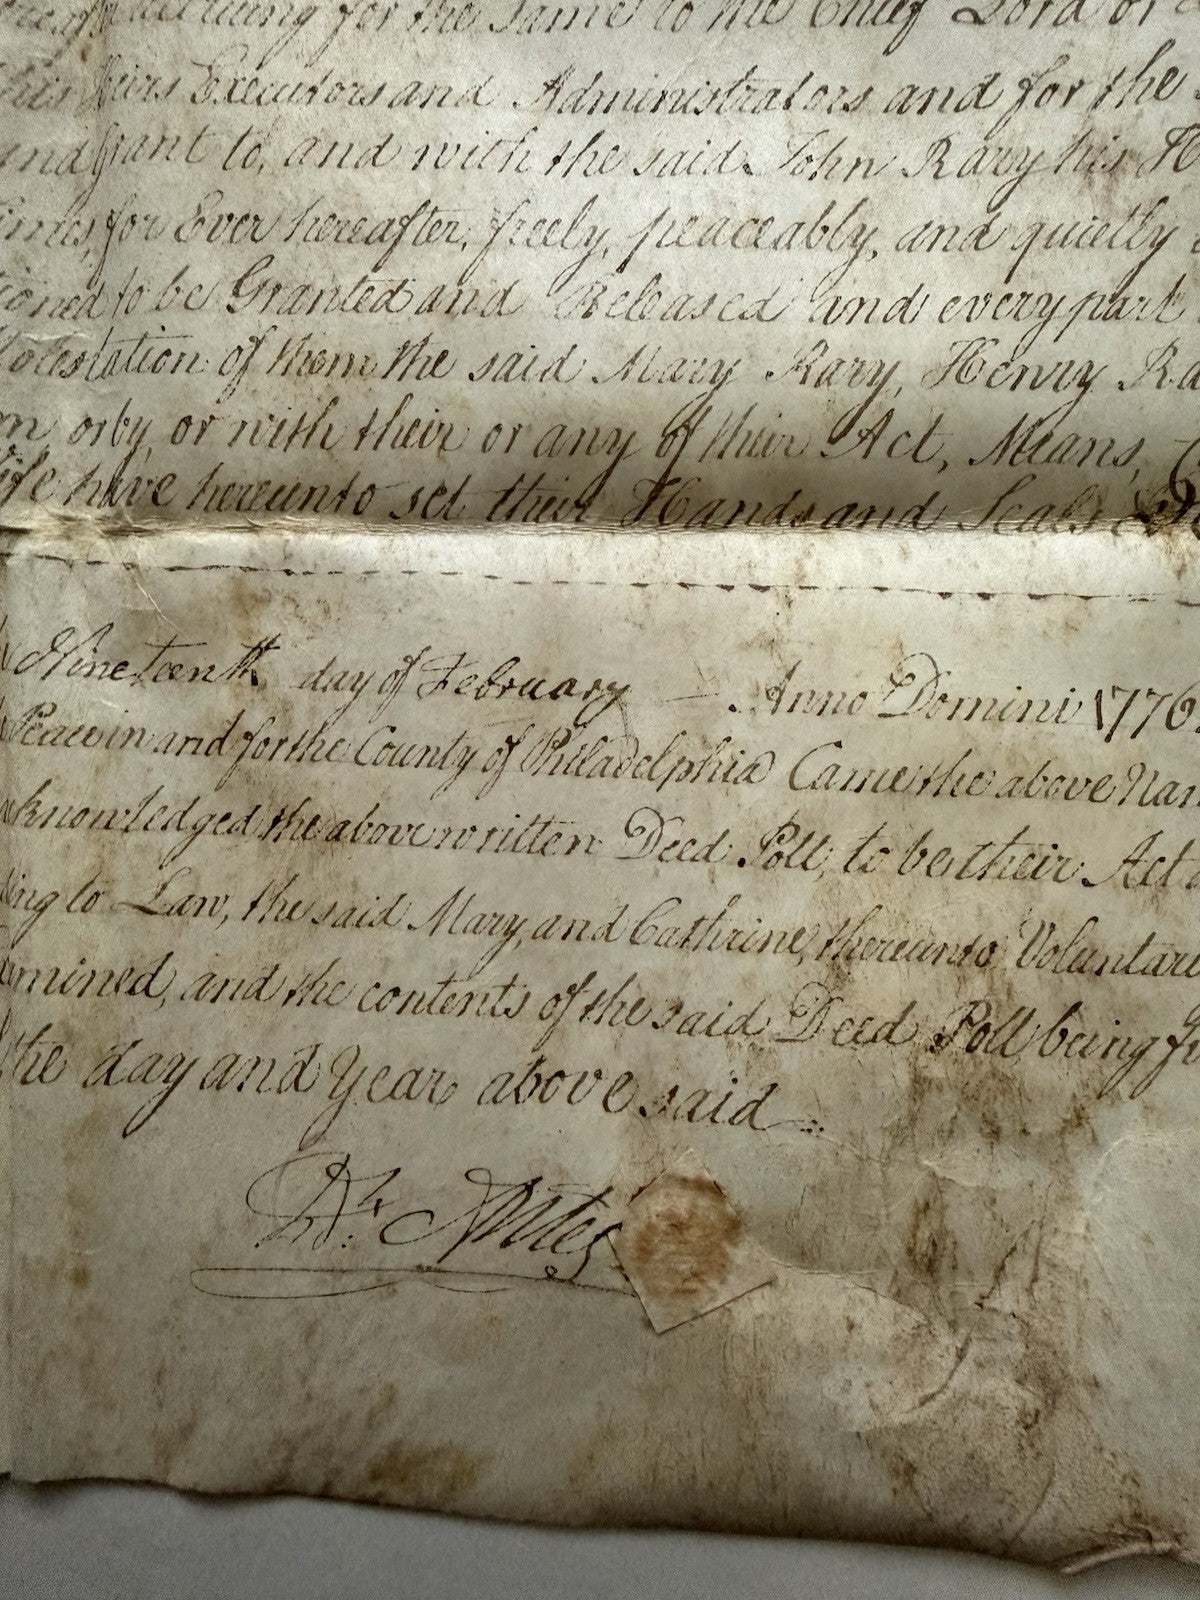 for the same to the Chief Lord or
his Heirs Executors and Administrators and for the
and Grant to, and with the said John Rary his H
times, for Ever hereafter, freely, peaceably, and quietly
ioned to be Granted and Released and every part
olestation of them the said Mary Rary, Henry Ra
m or by, or with their or any of their Act, Means,
ife have hereunto set their Hands and Seals
Nineteenth day of February Anno Domini 1776
Peace in and for the County of Philadelphia Came the above Nam
knowledged the above written Deed Poll, to be their Act
ing to Law, the said Mary, and Cathrine, thereunto Voluntare
mined, and the contents of the said Deed Poll, being fu
the day and Year above said
Antes